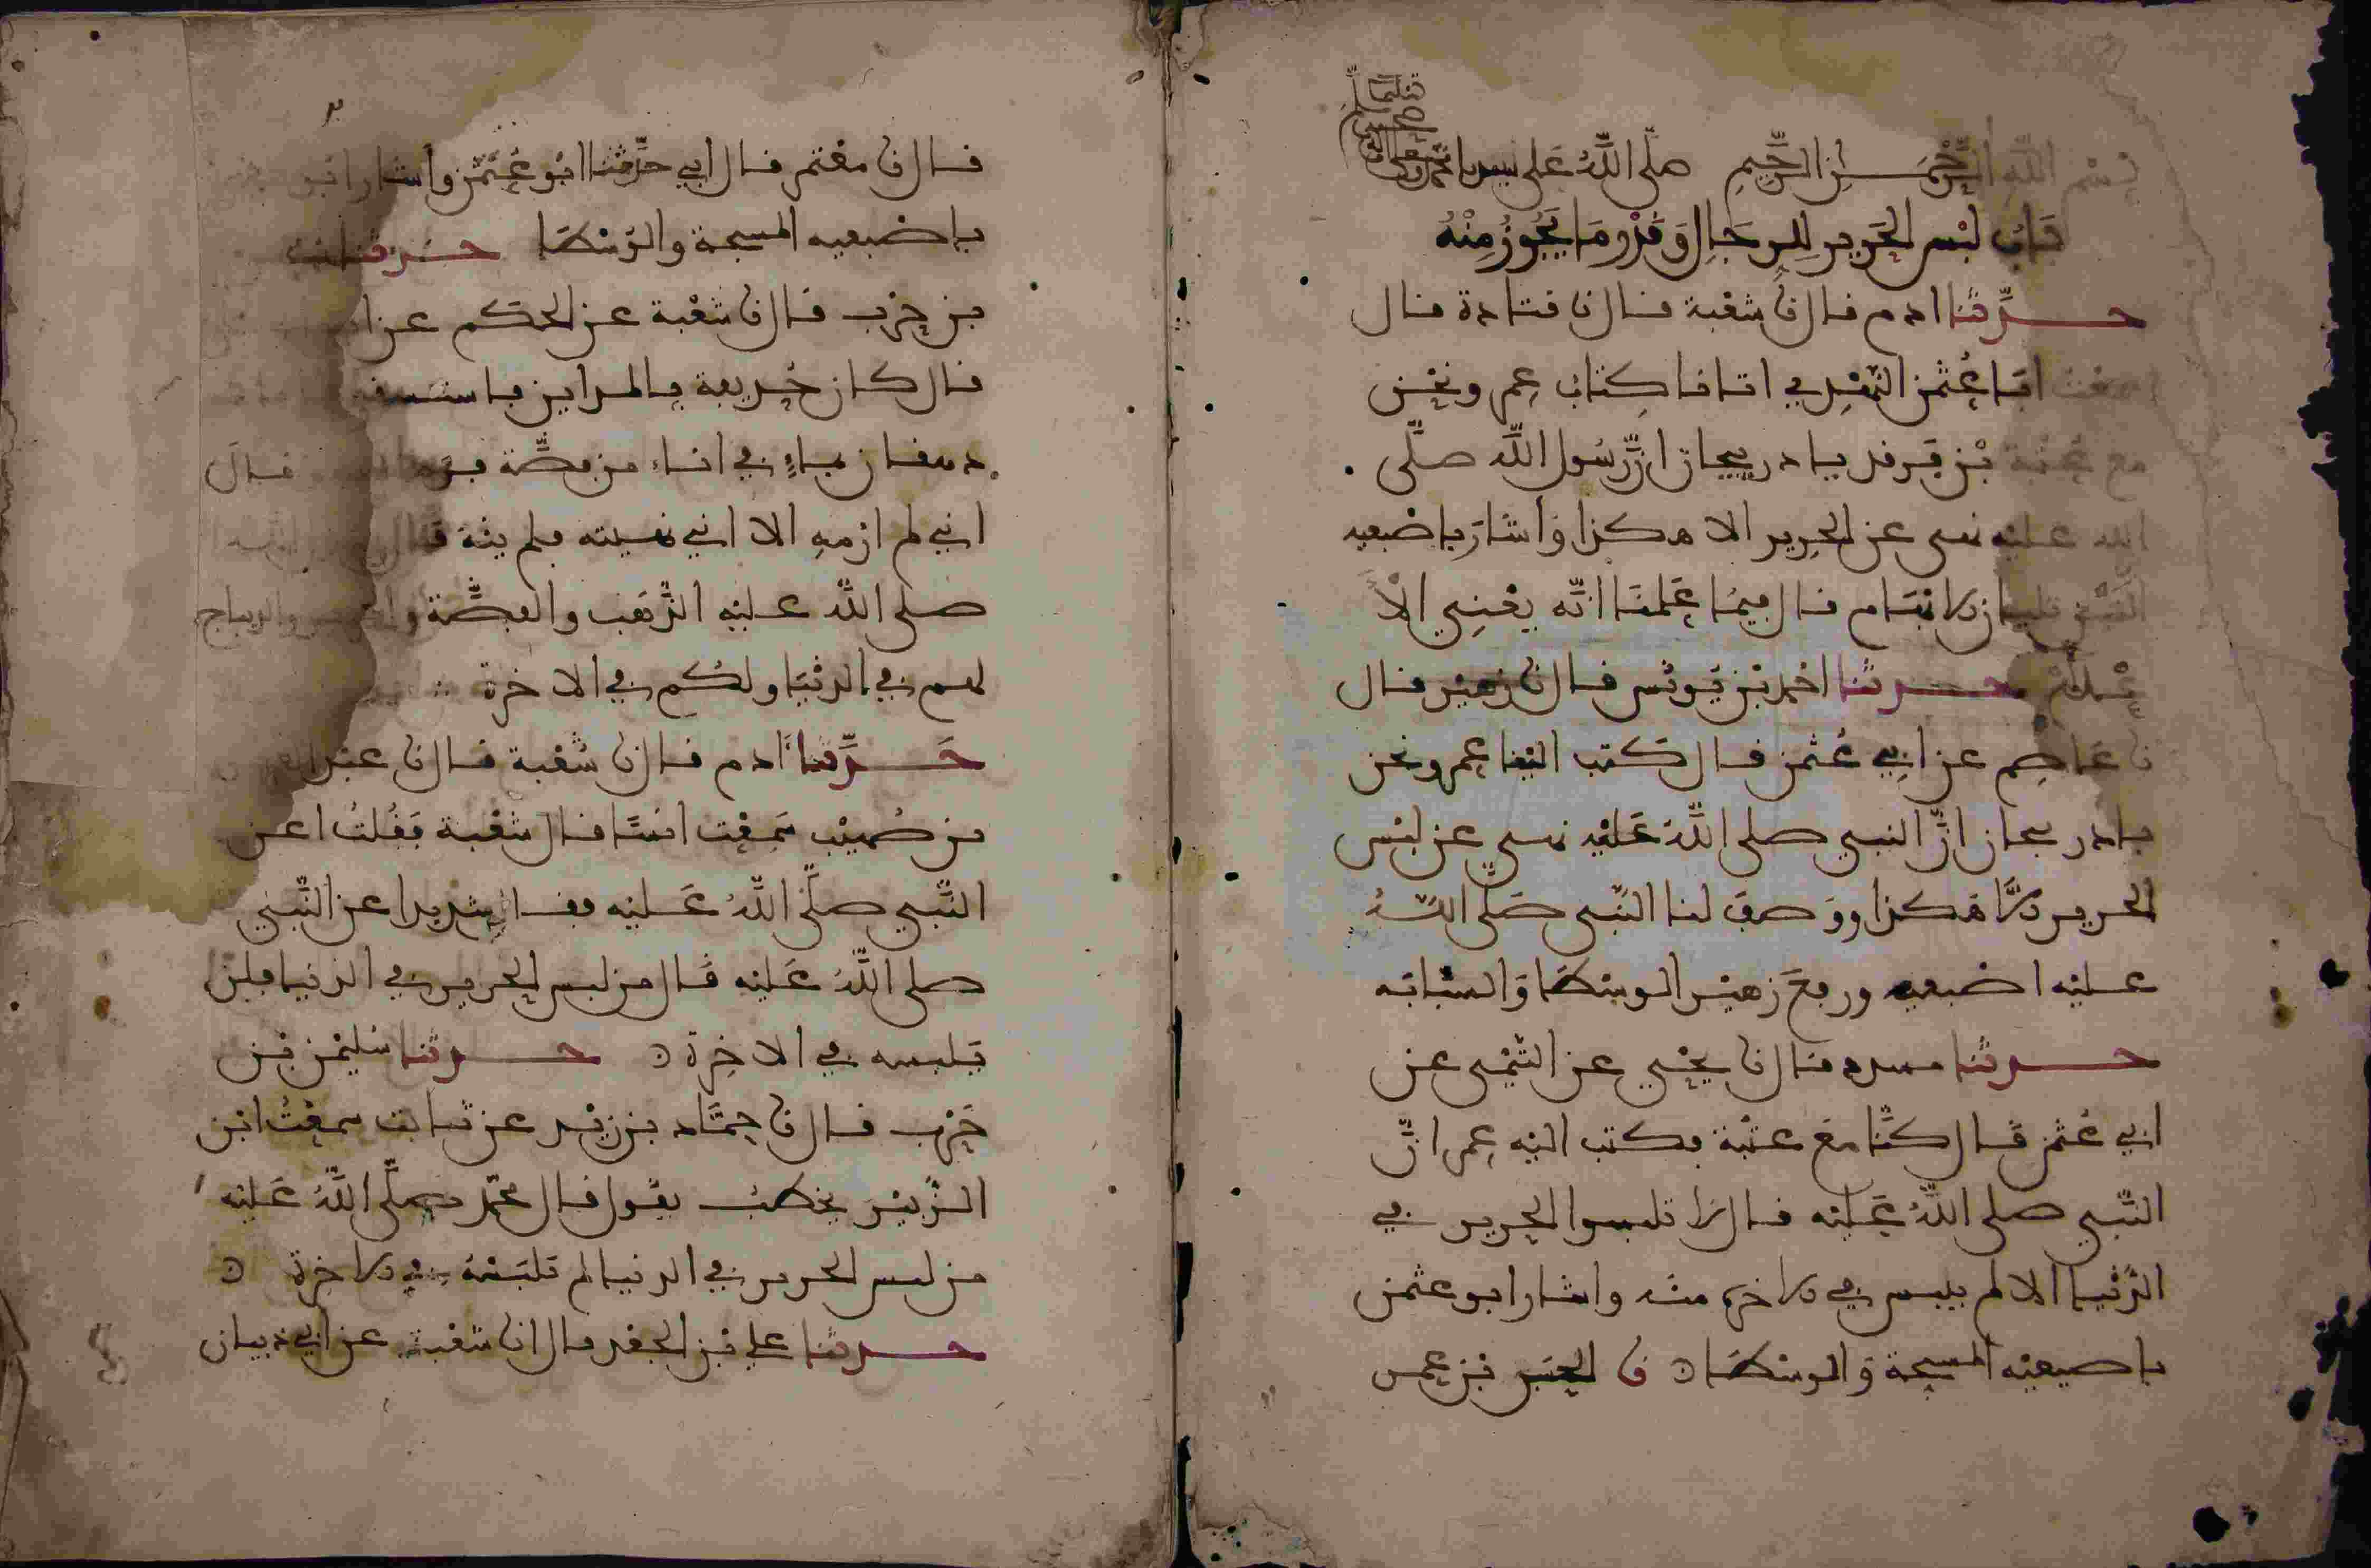 بسم الله الرحمن الرحيم صلى الله على سيدنا محمد وعلى اله وصحبه وسلم تسليما
باب لبس الحرير للرجال وقدر ما يجوز منه
حدثنا ادم قال نا شعبة قال نا قتادة قال
سمعت ابا عثمن النهدي اتانا كتاب عمر ونحن
مع عتبة بن فرقد باذربيجان ان رسول الله صلى
الله عليه نهى عن الحرير الا هكذا وأشار باصبعيه
اللتين تليان الابهام قال فيما علمنا انه يعني الا
علام حدثنا احمد بن يونس قال نا زهير قال
نا عاصم عن ابي عثمن قال كتب الينا عمر ونحن
باذربيجان ان النبي صلى الله عليه نهى عن لبس
الحرير الا هكذا ووصف لنا النبي صلى الله
عليه اصبعيه ورفع زهير الوسطا والسبابه
حدثنا مسدد قال نا يحيى عن التيمي عن
ابي عثمن قال كنا مع عتبة فكتب اليه عمر ان
النبي صلى الله عليه قال لا تلبسوا الحرير في
الدنيا الا لم يلبس في الاخرة منه واشار ابو عثمن
باصبعيه المسبحة والوسطا نا الحسن بن عمر
قال نا معتمر قال ابي حدثنا ابو عثمن وأشار ابو عثمن
باصبعيه المسبحة والوسطا حدثنا
بن حرب قال نا شعبة عن الحكم عن ا
قال كان حذيفة بالمداين فاستسقى
دهقان بماء في اناء من فضة فرماه قال
اني لم ارمه الا اني نهيته فلم ينته قال
صلى الله عليه الذهب والفضة والحرير والديباج
لهم في الدنيا ولكم في الاخرة
حدثنا ادم قال نا شعبة قال نا عبد العزيز
بن صهيب سمعت انسا قال شعبة فقلت اعن
النبي صلى الله عليه فقال شديدا عن النبي
صلى الله عليه قال من لبس الحرير في الدنيا فلن
يلبسه في الاخرة حدثنا سليمن بن
حرب قال نا حماد بن زيد عن ثابت سمعت ابن
الزبير يخطب يقول قال محمد صلى الله عليه
من لبس الحرير في الدنيا لم يلبسه في الاخرة
حدثنا علي بن الجعد قال انا شعبة عن ابي ذبيان